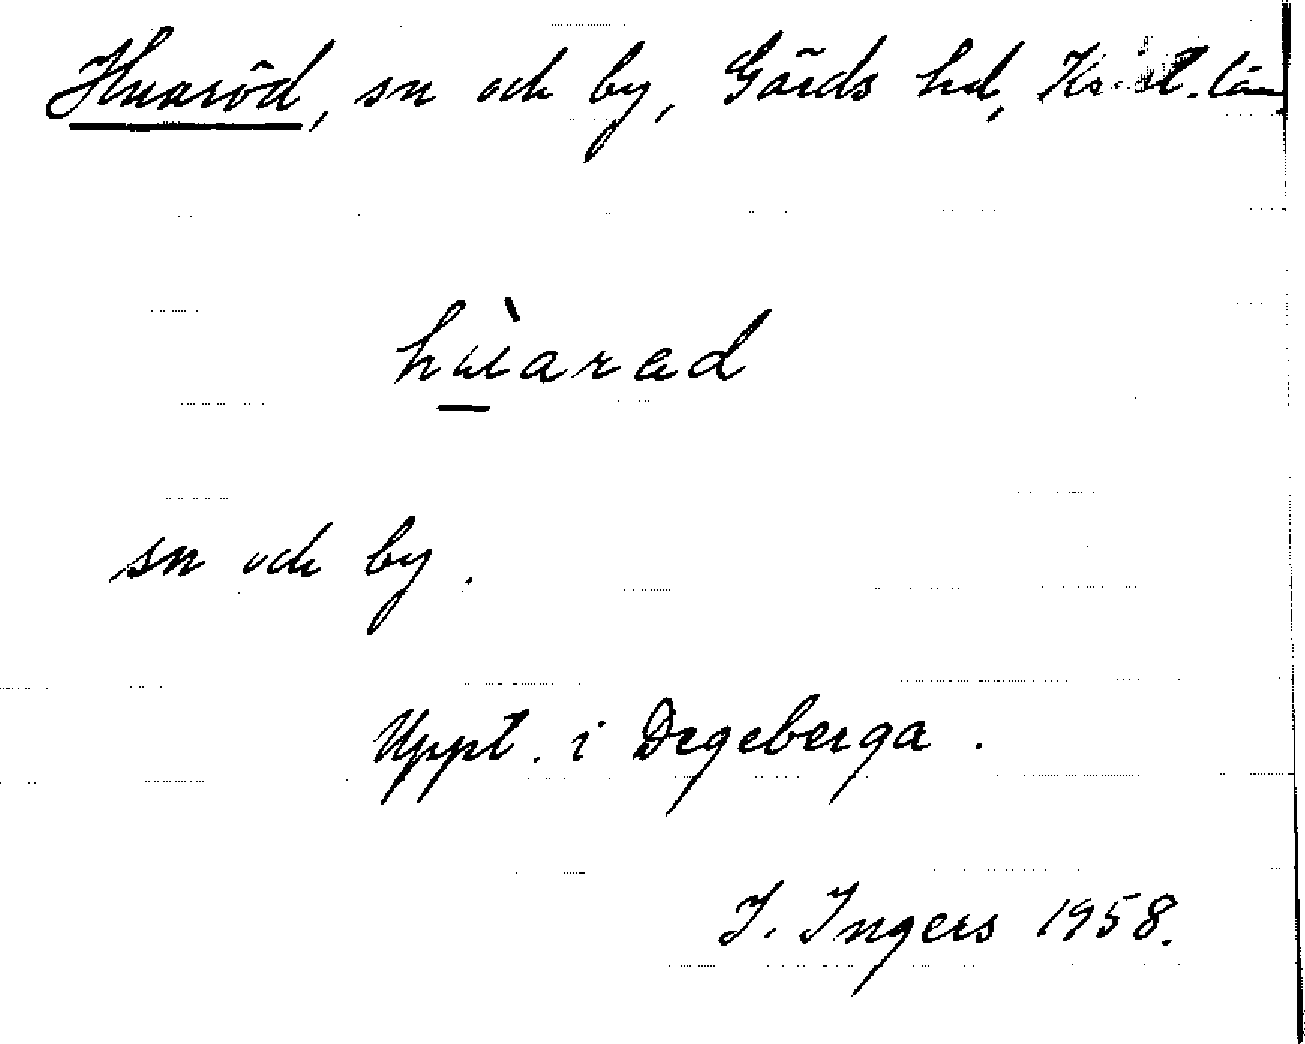 Huaröd, sn och by, Gärds hd, Krist. län
hùarad
sn och by.
Uppt. i Degeberga.
I. Ingers 1958.